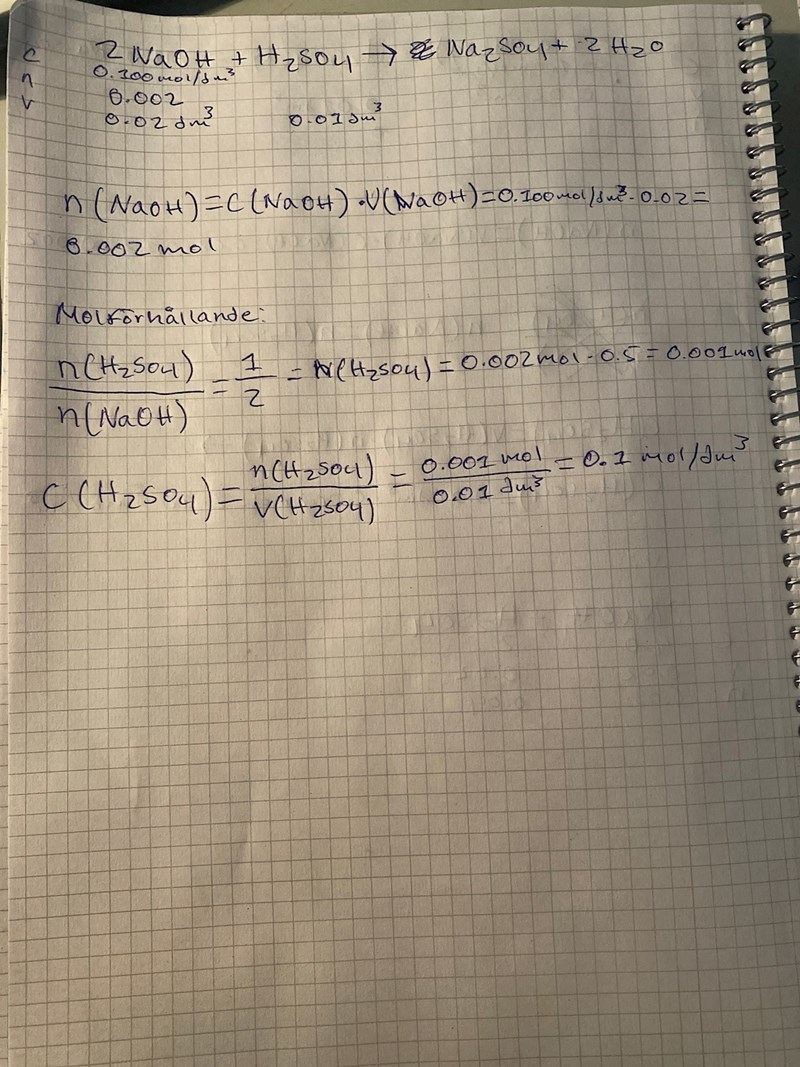 2 NaOH + H₂SO₄ → Na₂SO₄ + 2 H₂O
c 0.100 mol/dm³
n 0.002
v 0.02 dm³ 0.01 dm³
n(NaOH) = C(NaOH) · V(NaOH) = 0.100 mol/dm³ · 0.02 =
0.002 mol
Molförhållande:
n(H₂SO₄) / n(NaOH) = 1 / 2 = N(H₂SO₄) = 0.002 mol · 0.5 = 0.001 mol
C(H₂SO₄) = n(H₂SO₄) / V(H₂SO₄) = 0.001 mol / 0.01 dm³ = 0.1 mol/dm³